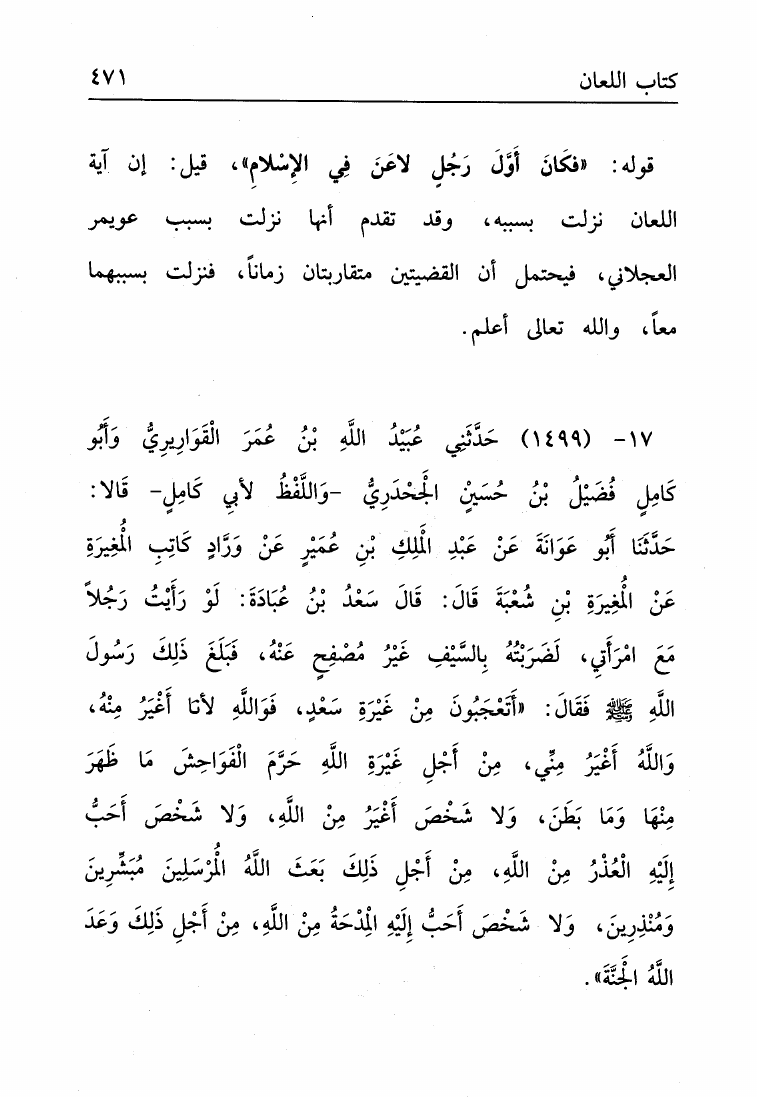 كتاب اللعان ٤٧١
قوله: «فَكَانَ أَوَّلَ رَجُلٍ لاعَنَ فِي الإِسْلامِ»، قيل: إن آية
اللعان نزلت بسببه، وقد تقدم أنها نزلت بسبب عويمر
العجلاني، فيحتمل أن القضيتين متقاربتان زماناً، فنزلت بسببهما
معاً، والله تعالى أعلم.
١٧- (١٤٩٩) حَدَّثَنِي عُبَيْدُ اللَّهِ بْنُ عُمَرَ الْقَوَارِيرِيُّ وَأَبُو
كَامِلٍ فُضَيْلُ بْنُ حُسَيْنٍ الْجَحْدَرِيُّ -وَاللَّفْظُ لأَبِي كَامِلٍ- قَالا:
حَدَّثَنَا أَبُو عَوَانَةَ عَنْ عَبْدِ الْمَلِكِ بْنِ عُمَيْرٍ عَنْ وَرَّادٍ كَاتِبِ الْمُغِيرَةِ
عَنْ الْمُغِيرَةِ بْنِ شُعْبَةَ قَالَ: قَالَ سَعْدُ بْنُ عُبَادَةَ: لَوْ رَأَيْتُ رَجُلاً
مَعَ امْرَأَتِي، لَضَرَبْتُهُ بِالسَّيْفِ غَيْرُ مُصْفِحٍ عَنْهُ، فَبَلَغَ ذَلِكَ رَسُولَ
اللَّهِ ﷺ فَقَالَ: «أَتَعْجَبُونَ مِنْ غَيْرَةِ سَعْدٍ، فَوَاللَّهِ لأَنَا أَغْيَرُ مِنْهُ،
وَاللَّهُ أَغْيَرُ مِنِّي، مِنْ أَجْلِ غَيْرَةِ اللَّهِ حَرَّمَ الْفَوَاحِشَ مَا ظَهَرَ
مِنْهَا وَمَا بَطَنَ، وَلا شَخْصَ أَغْيَرُ مِنْ اللَّهِ، وَلا شَخْصَ أَحَبُّ
إِلَيْهِ الْعُذْرُ مِنْ اللَّهِ، مِنْ أَجْلِ ذَلِكَ بَعَثَ اللَّهُ الْمُرْسَلِينَ مُبَشِّرِينَ
وَمُنْذِرِينَ، وَلا شَخْصَ أَحَبُّ إِلَيْهِ الْمِدْحَةُ مِنْ اللَّهِ، مِنْ أَجْلِ ذَلِكَ وَعَدَ
اللَّهُ الْجَنَّةَ».